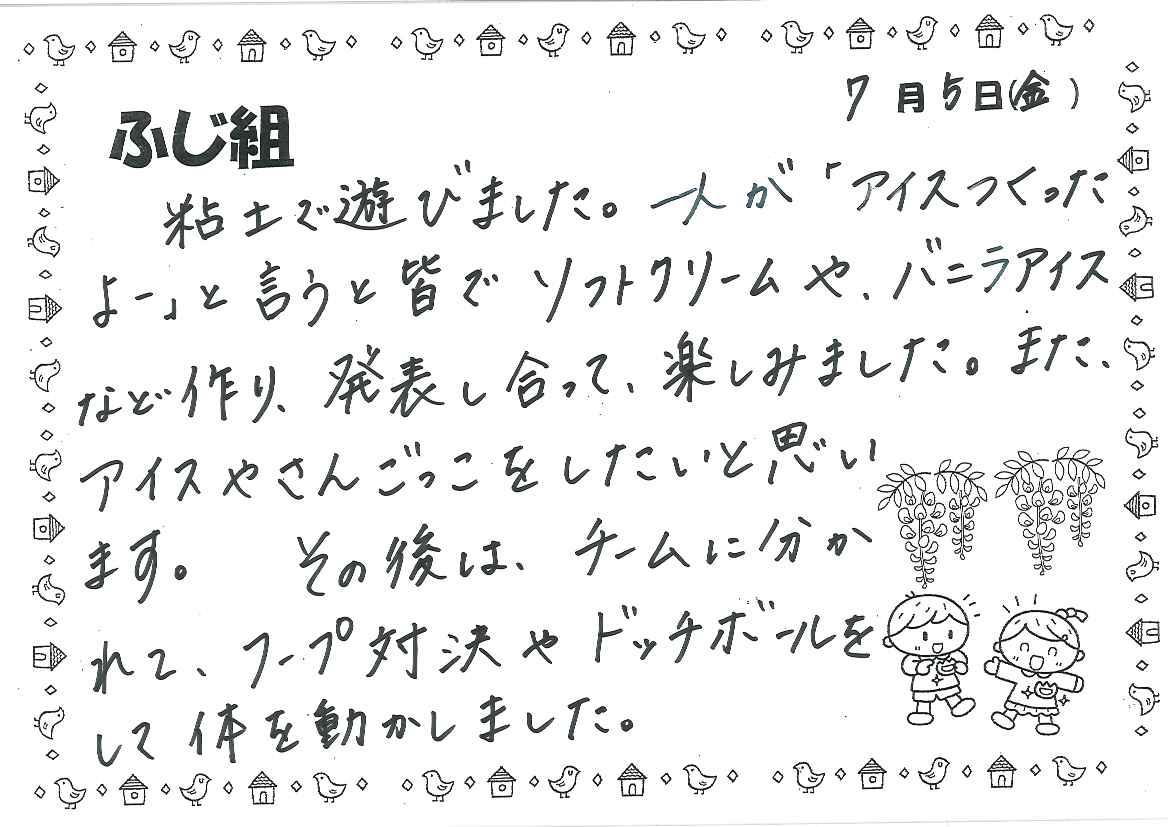 7月5日(金)
ふじ組
粘土で遊びました。一人が「アイスつくった
よー」と言うと皆でソフトクリームや、バニラアイス
など作り、発表し合って、楽しみました。また、
アイスやさんごっこをしたいと思い
ます。 その後は、チームに分か
れて、フープ対決やドッチボールを
して体を動かしました。